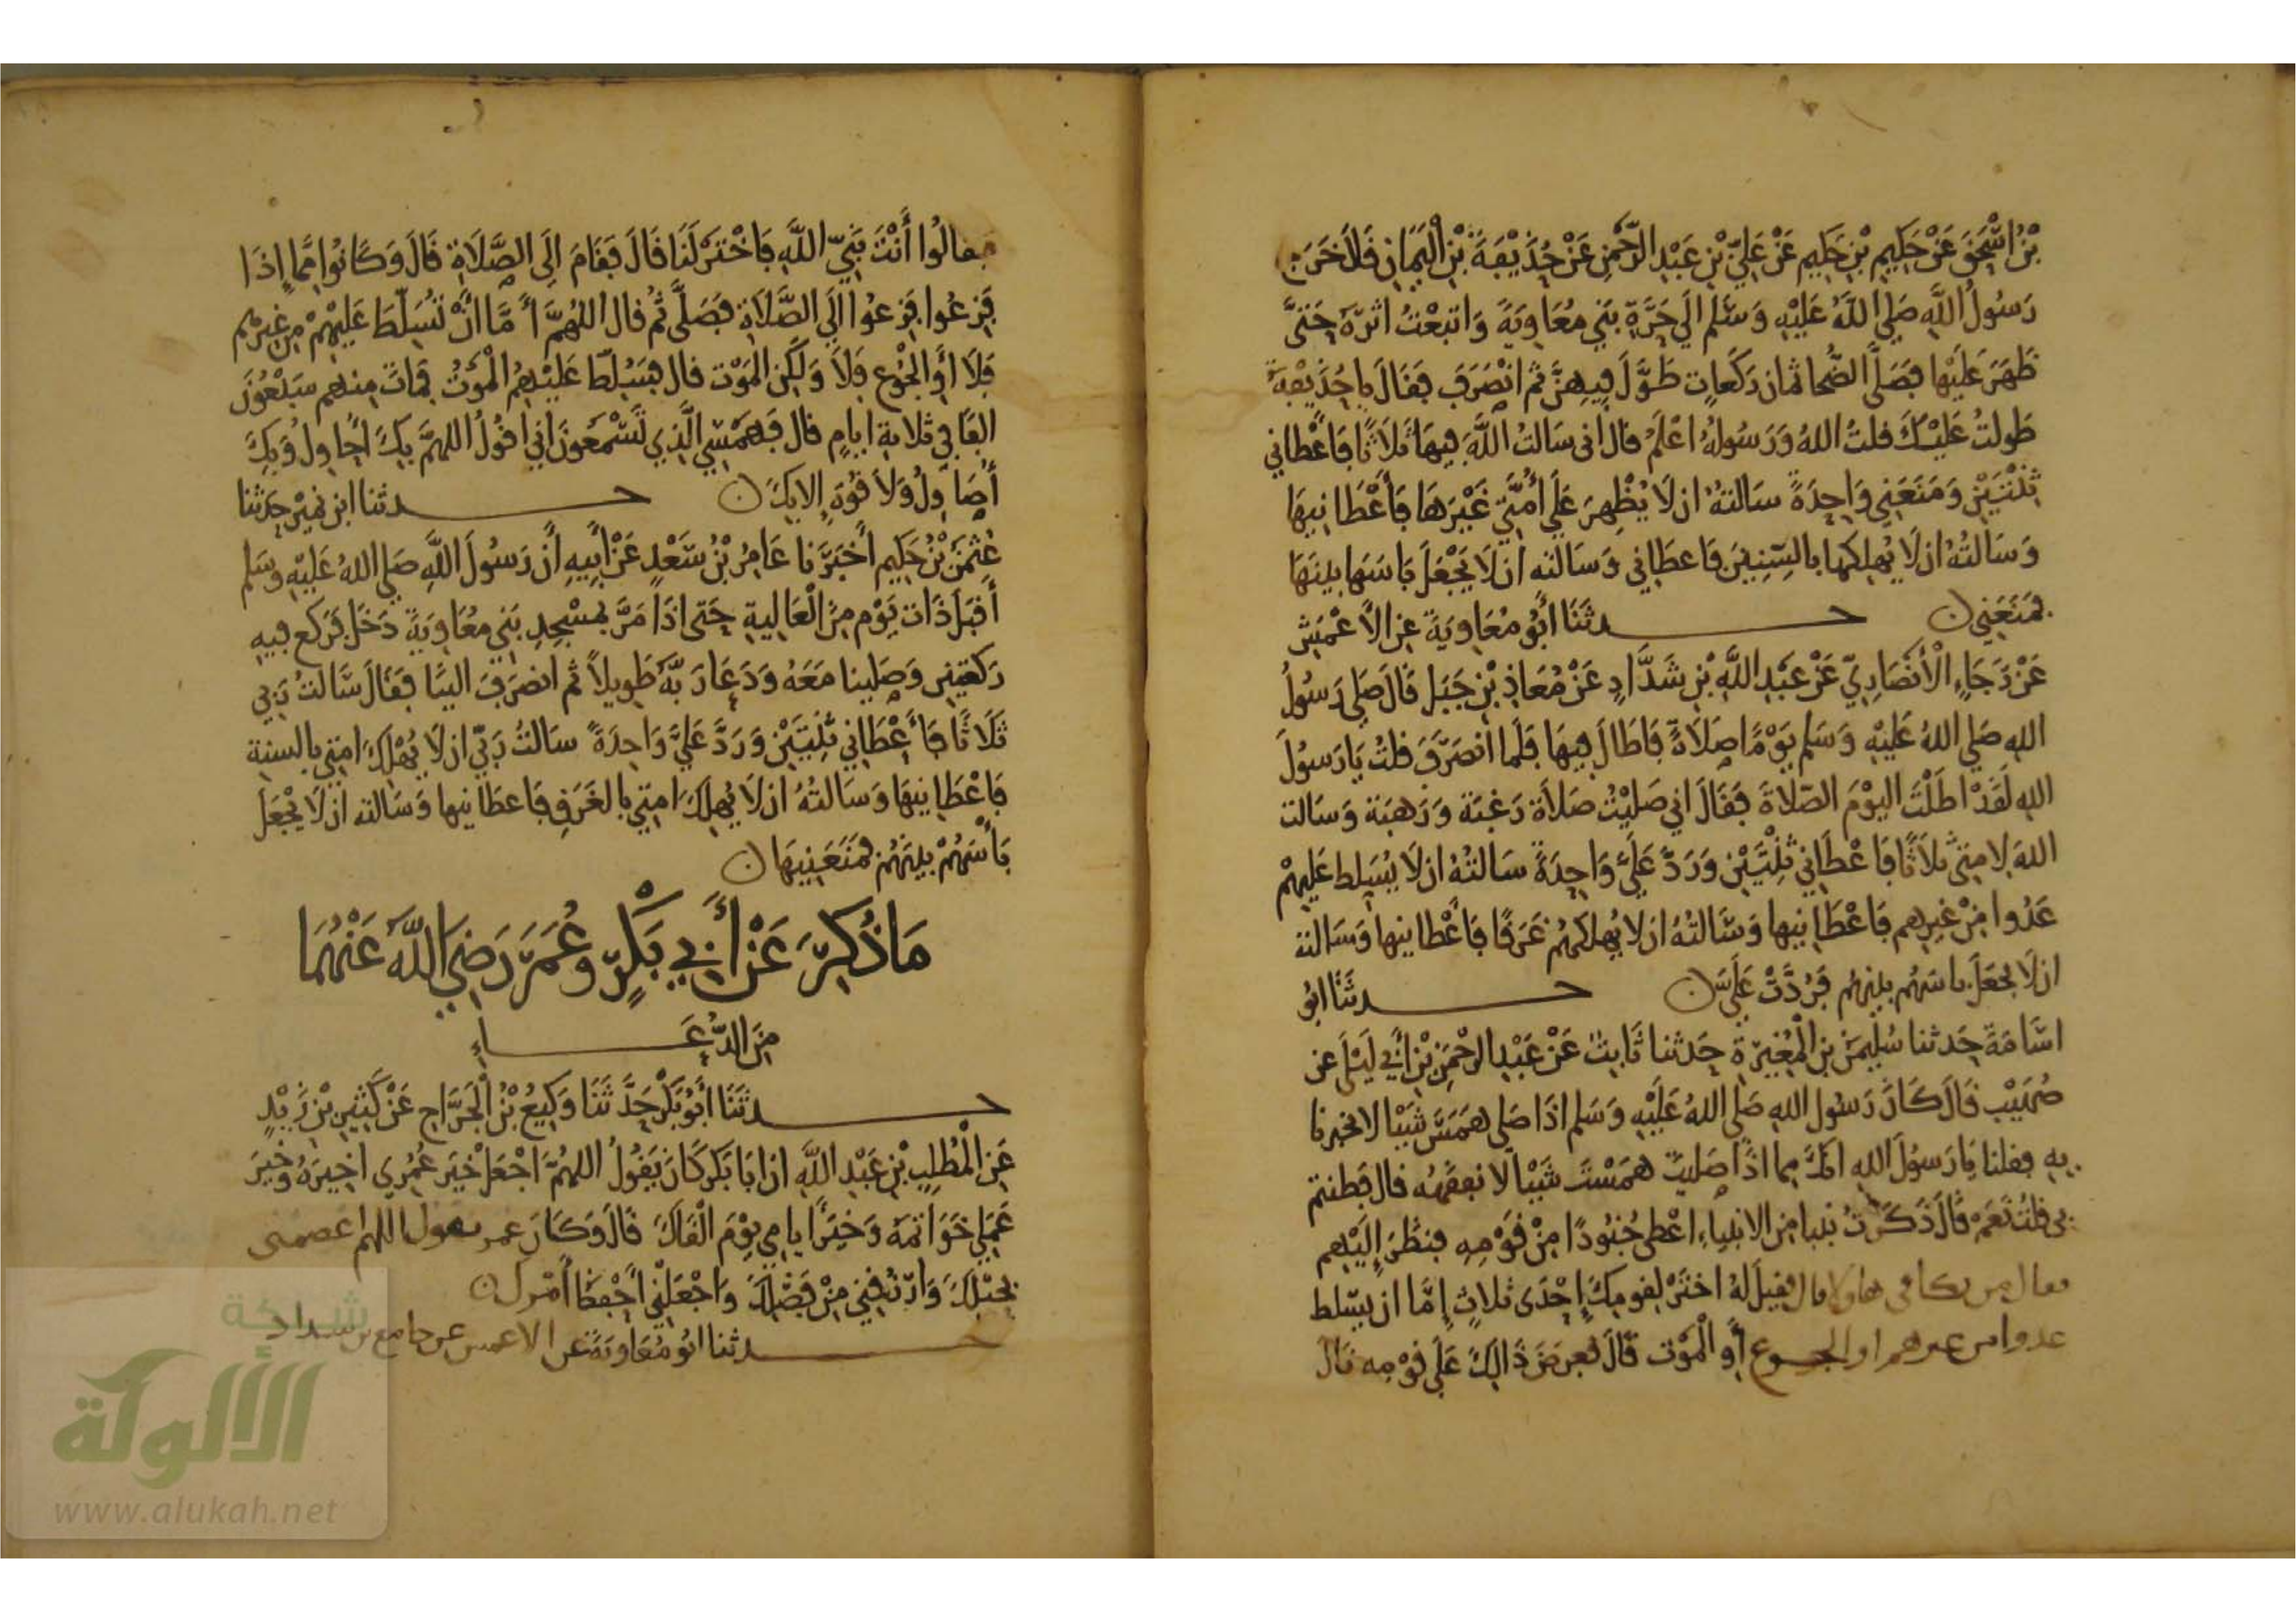 بْنُ اسْحَقَ عَنْ حَكِيمِ بْنِ حَكِيمٍ عَنْ عَلِيِّ بْنِ عَبْدِ الرَّحْمَنِ عَنْ حُذَيْفَةَ بْنِ الْيَمَانِ قَالَ خَرَجَ
رَسُولُ اللَّهِ صَلَى اللَّهُ عَلَيْهِ وَسَلَّمَ الَى حَرَّةِ بَنِي مُعَاوِيَةَ وَاتبَعْتُ اثرَهُ حَتَّى
ظَهَرَ عَلَيْهَا فصَلَّى الضُّحَا ثمَان رَكَعاتٍ طَوَّلَ فِيهِنَّ ثم انْصَرَفَ فَقَالَ يا حُذَيْفَةَ
طَولتُ عَلَيْكَ قلتُ اللهُ وَرَسُولُهُ اعْلَمُ قال انى سَالتُ اللَّهَ فِيهَا ثَلَاثًا فَاَعْطانِي
ثِنْتَيْنِ وَمَنَعَنِي وَاحِدَةً سَالتهُ ان لَا يُظْهِرَ عَلَى أُمَّتِي غَيْرَهَا فَأَعْطَانِيهَا
وَسَالتُهُ ان لَا يُهلِكهَا بالسِّنِينَ فَاعطَانِي وَسَالته ان لَا يَجْعَلَ بَاسَهَا بينَهَا
فمَنَعَنِي ن حـدثَنَا أَبُو مُعَاوِيَةَ عن الاَعْمَشِ
عَنْ رَجَاءِ الْأَنْصَارِيِّ عَنْ عَبْدِ اللَّهِ بْنِ شَدَّادٍ عَنْ مُعَاذِ بْنِ جَبَلٍ قَالَ صَلى رَسُولُ
اللهِ صَلى اللهُ عَلَيْهِ وَسَلم يَوْمًا صَلَاةً فَاطَالَ فِيهَا فلَما انصَرَفَ قلتُ يَا رَسُولَ
اللهِ لَقَدْ اطَلْتَ اليَوْمَ الصَّلاةَ فَقَالَ انِي صَليْتُ صَلاَة رَغبَة وَرَهبَة وَسَالت
اللهَ لامتِي ثلاَثًا فَاعْطَانِي ثِنْتَيْنِ وَرَدَّ عَلَيَّ وَاحِدَةً سَالتُهُ ان لَا يُسَلِط عَلَيْهِمْ
عَدُوا مِنْ غيرِهم فَاعْطَانِيها وَسَالتُهُ ان لا يُهلكهُمْ غَرَقًا فَاَعْطانيها وَسَالته
ان لَا يجعَلَ باسَهُم بينهُم فَرُدَّتْ عَلَيَّ ن حـدثَنَا ابُو
اسَامَةَ حَدثنا سُليمَنُ بن الْمُغِيرَة حَدثنا ثَابِتٌ عَنْ عَبْدِ الرحْمَنِ بْنِ أَبِي لَيْلَى عن
صُهَيْب قَالَ كَانَ رَسُول اللهِ صَلى اللهُ عَلَيْهِ وَسَلم اذَا صَلى هَمَسَ شَيْيا لا يخبرنا
بِهِ فقلنا يَا رَسُولَ اللهِ انكَ مما اذَا صَليتَ هَمَسْتَ شَيْيا لَا نفقَهُه قال فَطنتم
بِي قلتُ نَعَمْ قَالَ ذَكَرْتُ نبيا مِنَ الانبياءِ اعْطِى جُنُودًا مِنْ قَوْمِهِ فنظَرَ إِلَيْهِم
فقال من يكافى هاولا قال فقِيلَ لهُ اخترْ لقومِكَ إِحْدَى ثَلاثٍ إِمَّا ان يسَلط
عدوا من غيرهم او الجـوع أَو الْمَوْت قَالَ فعرَضَ ذَالِكَ عَلَى قَوْمِه قَالَ
فقالُوا أَنْتَ نَبِيُّ اللَّهِ فَاخْتَرْ لَنَا قَالَ فَقَامَ اِلَى الصَّلَاةِ قَالَ وَكَانُوا مِمَّا إِذَا
فَزِعُوا فَزِعُوا الَى الصَّلَاةِ فَصَلَّى ثُمَّ قال اللهُمَّ أَمَّا أَنْ تُسَلِّطَ عَلَيْهِمْ مِنْ غَيرِهِم
فَلَا أَوِ الْجُوْع فَلَا وَلَكِنِ المَوْت قال فسُلِّطَ عَلَيْهِمُ الْمَوْتُ فمَاتَ مِنهم سَبْعُوْنَ
الفًا فِي ثَلاثةِ ايامٍ قال فَهَمْسِي الَّذِي تَسْمَعونَ انِي اقوْلُ اللهمَّ بكَ احَاوِلُ وَبِكَ
أُصَاوِلُ وَلَا قُوَّةَ إلا بِكَ ن حـدثنا ابن نمَيْرٍ حَدثنا
عُثمَن بْنُ حَكِيم أَخبَرَنَا عَامِرُ بْنُ سَعْدٍ عَنْ أَبِيهِ أَنَّ رَسُولَ اللَّهِ صَلى اللهُ عَلَيْهِ وسَلم
أَقبَلَ ذَات يَوْم مِنَ الْعَالِيةِ حَتى اذَا مَرَّ بمَسْجِدِ بَنِي مُعَاوِيَةَ دَخَلَ فَرَكَع فِيهِ
رَكعتين وَصَلينا مَعَهُ وَدَعَا رَبَّهُ طَوِيلاً ثم انصَرَفَ الينَا فقَالَ سَالتُ رَبِي
ثَلَاثًا فَأَعْطَانِي ثِنْتَيْنِ وَرَدَّ عَلَيَّ وَاحِدَةً سَالتُ رَبِّي ان لَا يُهْلِكَ امتِي بالسنةِ
فَاعْطَانِيهَا وَسَالتُهُ ان لَا يُهلِكَ امتِي بالغَرَقِ فَاعطَانيها وَسَالته ان لَا يَجْعَلَ
بَأْسَهُمْ بينهُمْ فمَنَعَنِيهَا ن
مَا ذُكِرَ عَنْ أَبِي بَكْرٍ وعُمَرَ رَضِيَ اللَّهُ عَنْهُمَا
مِنَ الدُّعَـاءِ
حـدثَنَا أَبُو بَكْرٍ حَدَّثَنَا وَكِيعُ بْنُ الْجَرَّاحِ عَنْ كَثِيرِ بْنِ زَيْدٍ
عَنِ الْمُطَّلِبِ بْنِ عَبْدِ اللَّهِ ان ابَا بَكرٍ كَانَ يَقُولُ اللهُمَّ اجْعَلْ خَيْرَ عُمُرِي اخِيرَهُ وَخَيْرَ
عَمَلِي خَوَاتمَهُ وَخَيْرَ ايامِي يَوْمَ الْقَاكَ قَالَ وَكَانَ عمر يقول اللهم اعصمنى
بحَبْلِكَ وَارْزُقنِي مِنْ فَضْلِكَ وَاجْعَلْنِي احْفَظُ أَمْرك ن
حـدثنا ابُو مُعَاوِيَةَ عن الاعمش عن جامع بن شداد
شبكة
الألوكة
www.alukah.net